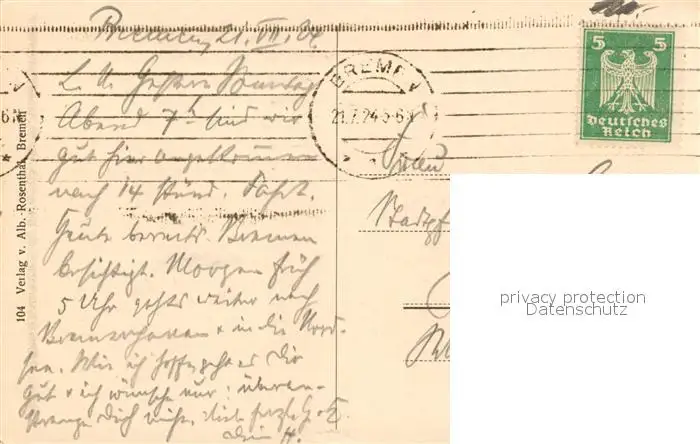 Bremen, 21. VII. 24
L. H. Gestern Sonntag
Abend 7h sind wir
gut hier angekommen
nach 14 stünd. Fahrt.
Heute bereits Bremen
besichtigt. Morgen früh
5 Uhr gehts weiter nach
Bremerhaven & in die Nord-
see. Wie ich hoffe geht es Dir
gut & ich wünsche nur: überan-
strenge Dich nicht. herzl. G. & K.
Dein H.
104 Verlag v. Alb. Rosenthal, Bremen
BREMEN
21.7.24 5-6
5 5
Deutsches
Reich
Frau
Stadtpf
privacy protection
Datenschutz